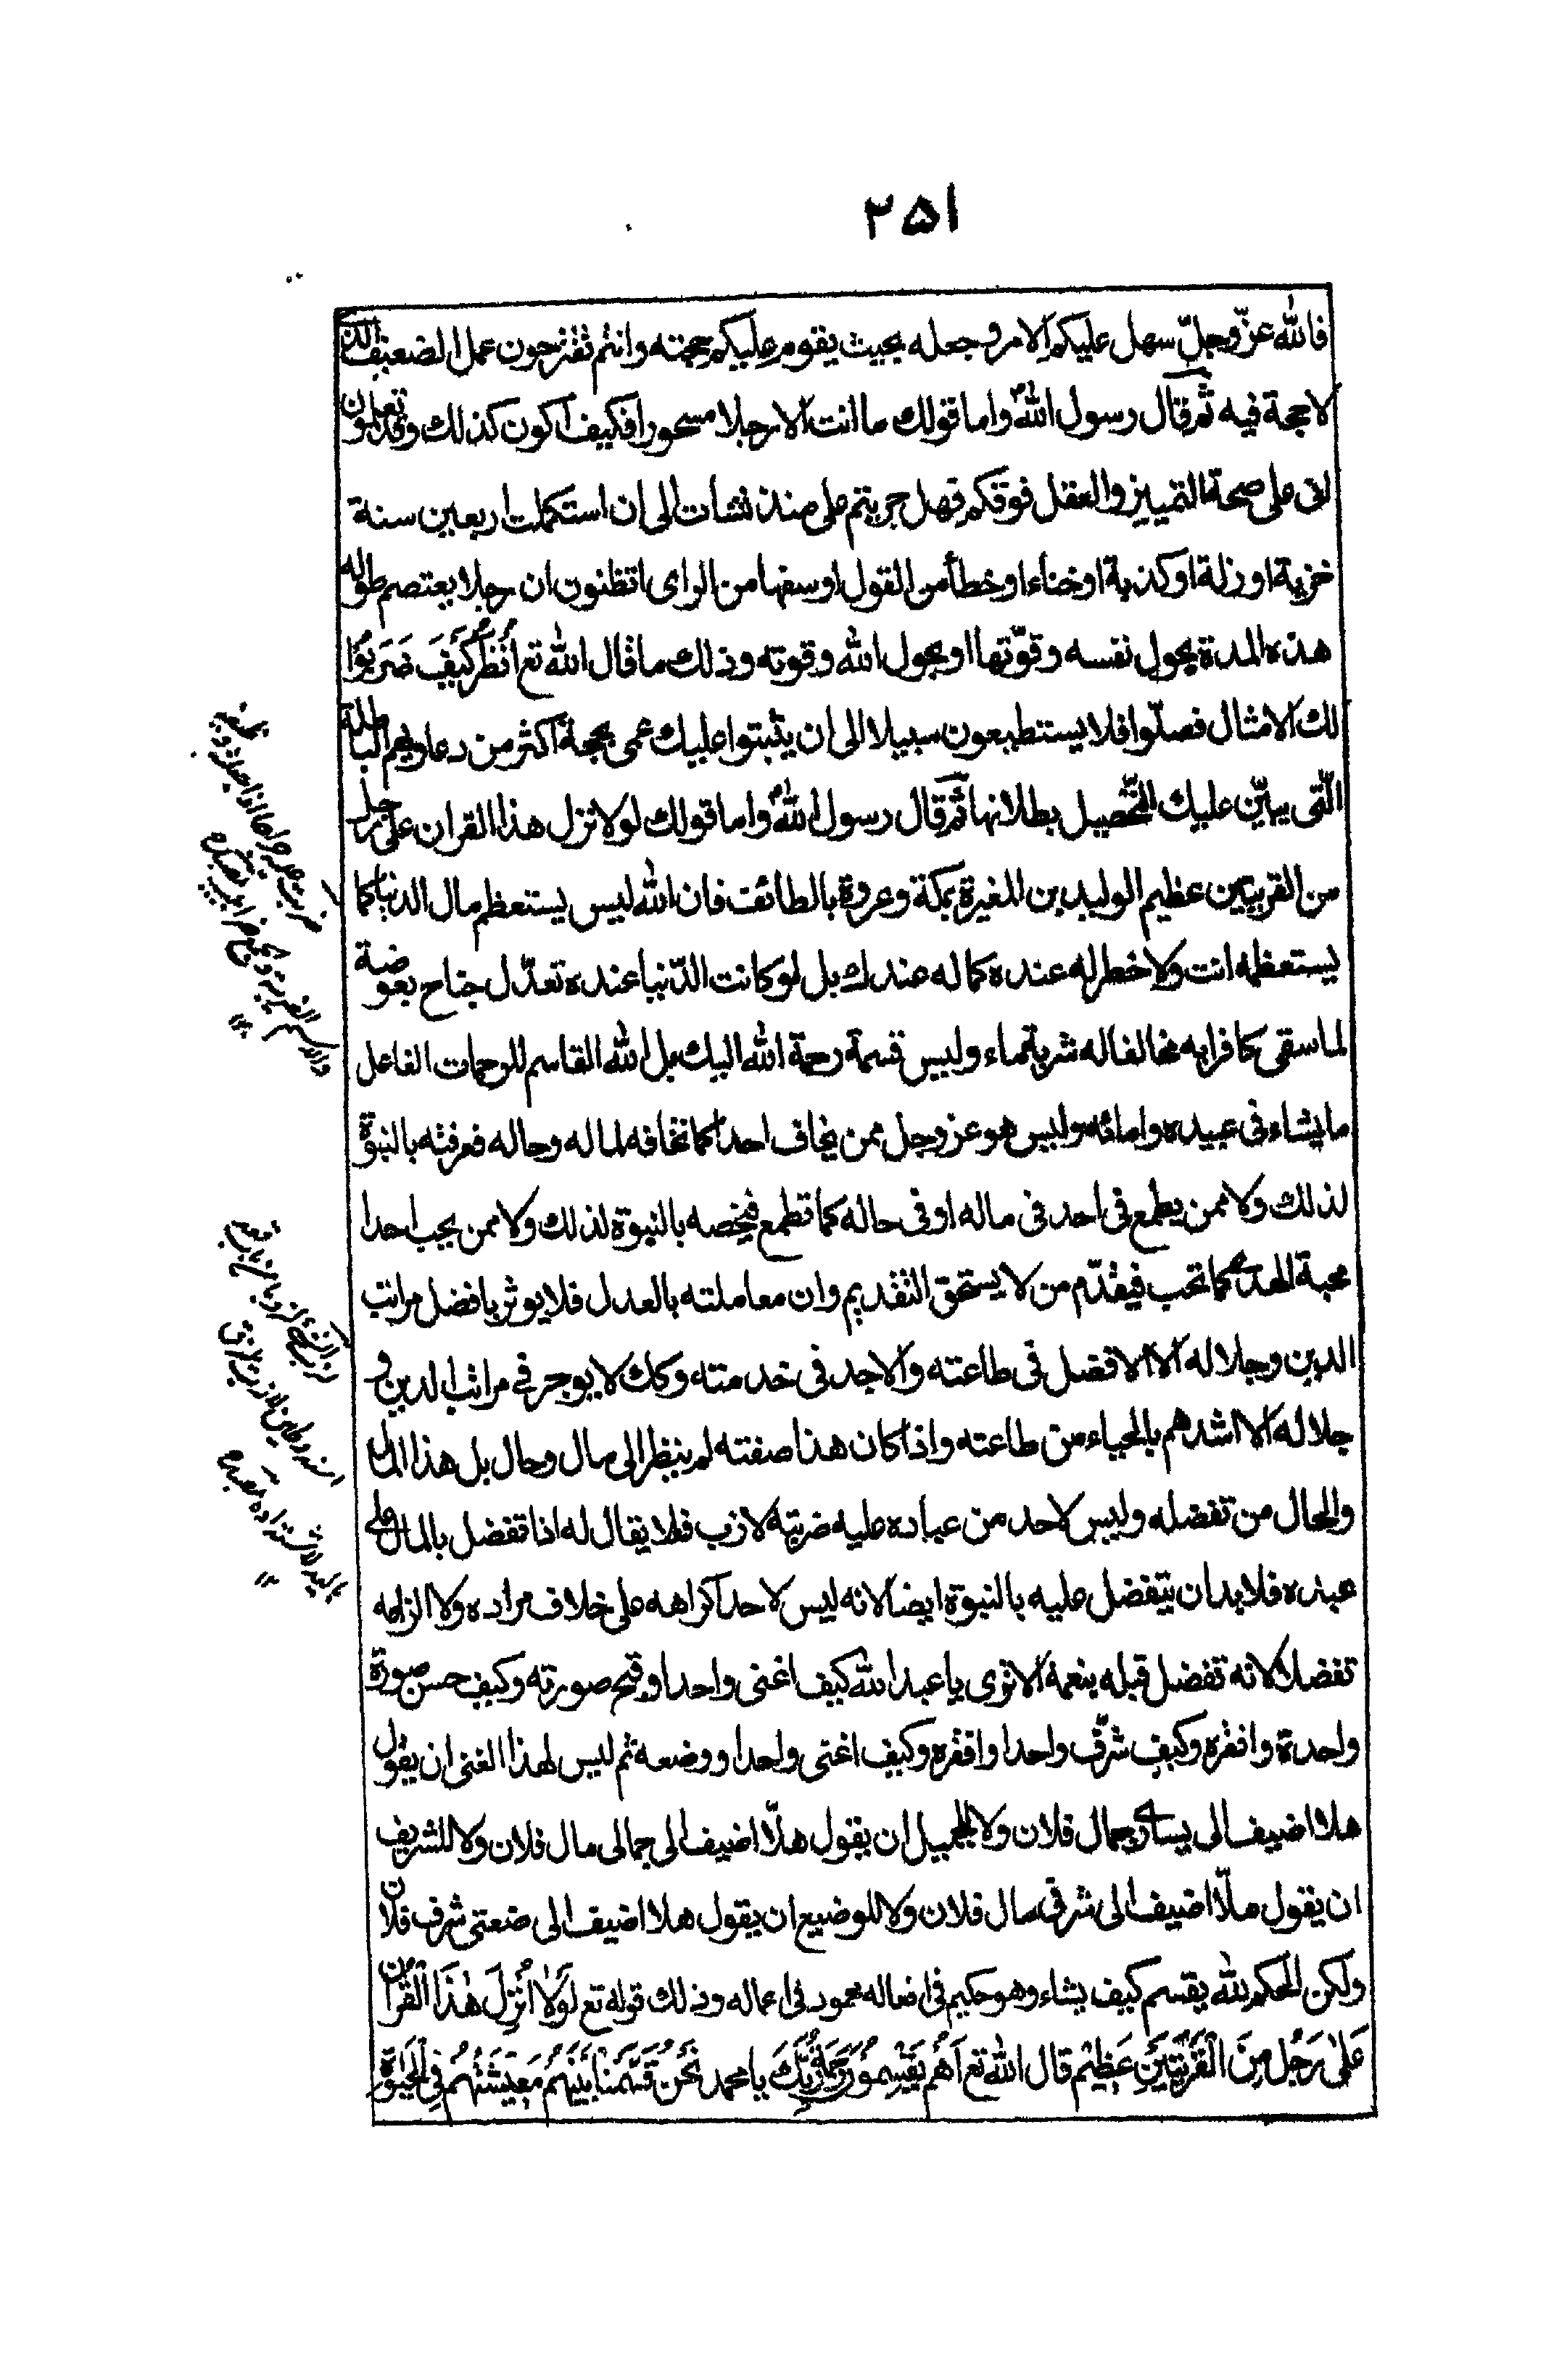 ٢٥١
فالله عزّ وجلّ سهل عليكم الامر وجعله بحيث يقوم عليكم حجته وانتم تقترحون عمل الضعيف الذى
لا حجة فيه ثم قال رسول الله ص واما قولك ما انت الا رجلا مسحورا فكيف اكون كذلك وقد تعلمون
انى على صحة التمييز والعقل فوقكم فهل جربتم على منذ نشات الى ان استكملت اربعين سنة
خزية او زلة او كذبة او خناء او خطأ من القول او سفها من الراى اتظنون ان رجلا يعتصم طول
هذه المدة بحول نفسه وقوّتها او بحول الله وقوته وذلك ما قال الله تع اُنْظُرْ كَيْفَ ضَرَبُوا
لك الامثال فضلّوا فلا يستطيعون سبيلا الى ان يثبتوا عليك عمى بحجة اكثر من دعاويهم الباطلة
الّتى يبيّن عليك التّحصيل بطلانها ثم قال رسول الله ص واما قولك لولا نزل هذا القران على رجل
من القريتين عظيم الوليد بن المغيرة بمكة وعروة بالطائف فان الله ليس يستعظم مال الدنيا كما
يستعظمه انت ولا خطر له عنده كما له عندك بل لو كانت الدّنيا عنده تعدل جناح بعوضة
لما سقى كافرا به مخالفا له شربة ماء وليس قسمة رحمة الله اليك بل الله القاسم للرحمات الفاعل
ما يشاء فى عبيده وامائه وليس هو عز وجل ممن يخاف احدا كما تخافه لماله وحاله فعرفته بالنبوة
لذلك ولا ممن يطمع فى احد فى ماله او فى حاله كما تطمع فيخصه بالنبوة لذلك ولا ممن يحب احدا
محبة الهدى كما تحب فيقدّم من لا يستحق التقديم وان معاملته بالعدل فلا يوثر بافضل مراتب
الدين وجلاله الا الافضل فى طاعته والاجد فى خدمته وكك لا يوجر فى مراتب الدين و
جلاله الا اشدهم بالحياء من طاعته واذا كان هذا صفته لم ينظر الى مال وحال بل هذا المال
والحال من تفضله وليس لاحد من عباده عليه ضريبة لازب فلا يقال له اذا تفضل بالمال على
عبده فلا بد ان يتفضل عليه بالنبوة ايضا لانه ليس لاحد اكراهه على خلاف مراده ولا الزامه
تفضلا لانه تفضل قبله بنعمة الا ترى يا عبد الله كيف اغنى واحدا وقبح صورته وكيف حسن صورة
واحدة وافقره وكيف شرّف واحدا وافقره وكيف اغنى واحدا ووضعه ثم ليس لهذا الغنى ان يقول
هلا اضيف الى يسارى جمال فلان ولا للجميل ان يقول هلّا اضيف الى جمالى مال فلان ولا للشريف
ان يقول هلّا اضيف الى شرفى مال فلان ولا للوضيع ان يقول هلا اضيف الى ضعتى شرف فلان
ولكن الحكم لله يقسم كيف يشاء وهو حكيم فى افعاله محمود فى اعماله وذلك قوله تع لَوْلا اُنْزِلَ هٰذَا الْقُرْانُ
عَلىٰ رَجُلٍ مِنَ الْقَرْيَتَيْنِ عَظِيْمٍ قال الله تع اَهُمْ يَقْسِمُونَ رَحْمَةَ رَبِّكَ يا محمد نَحْنُ قَسَمْنٰا بَيْنَهُمْ مَعِيْشَتَهُمْ فِى الْحَيٰوةِ